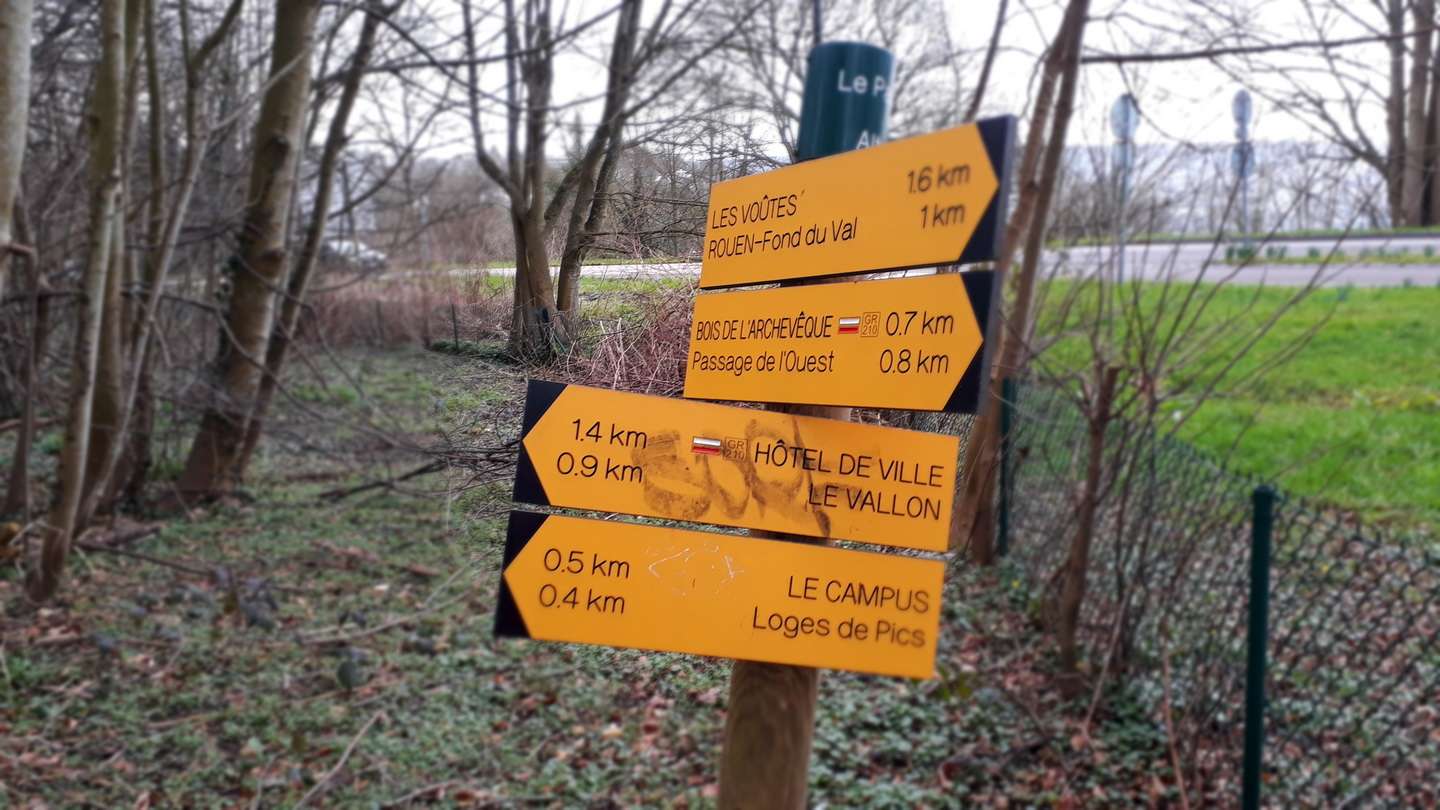 Le
LES VOÛTES 1.6 km
ROUEN-Fond du Val 1 km
BOIS DE L'ARCHEVÊQUE GR 210 0.7 km
Passage de l'Ouest 0.8 km
1.4 km GR 210 HÔTEL DE VILLE
0.9 km LE VALLON
0.5 km LE CAMPUS
0.4 km Loges de Pics